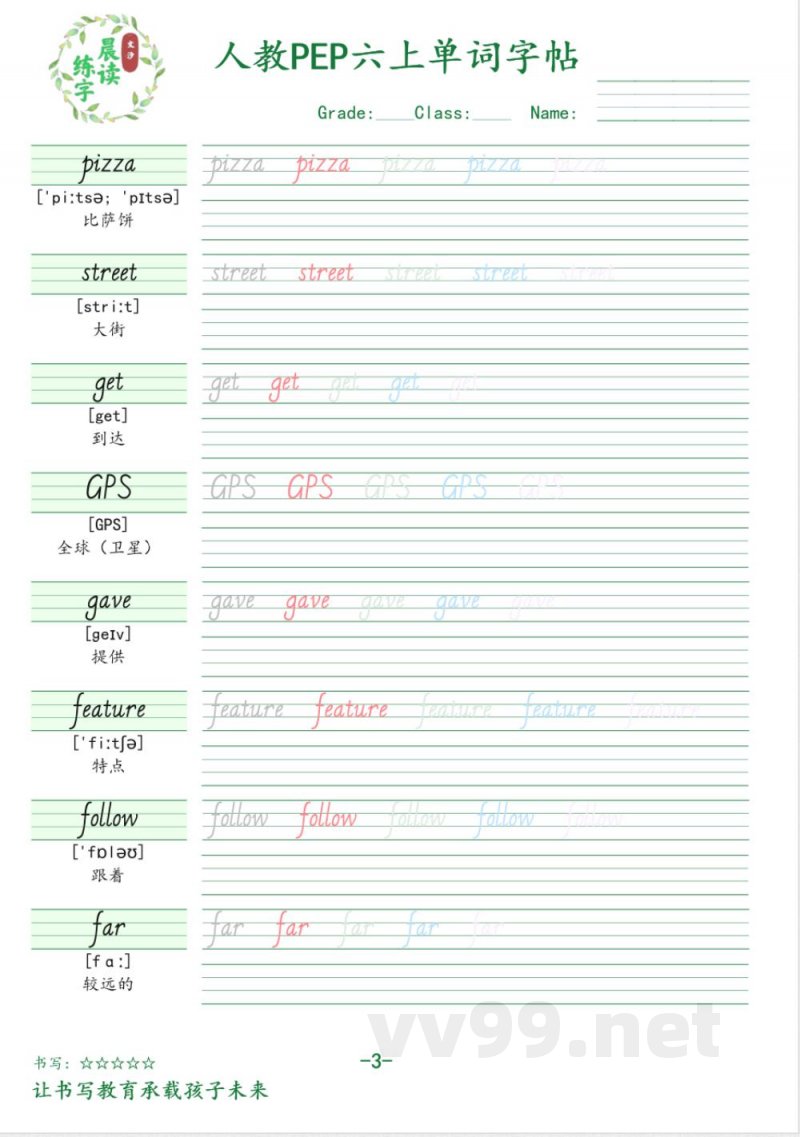 文汐
晨读
练字
人教PEP六上单词字帖
Grade:____Class:____ Name:
pizza pizza pizza pizza pizza pizza
[ˈpiːtsə; ˈpɪtsə]
比萨饼
street street street street street street
[striːt]
大街
get get get get get get
[get]
到达
GPS GPS GPS GPS GPS GPS
[GPS]
全球（卫星）
gave gave gave gave gave gave
[geɪv]
提供
feature feature feature feature feature feature
[ˈfiːtʃə]
特点
follow follow follow follow follow follow
[ˈfɒləʊ]
跟着
far far far far far far
[fɑː]
较远的
vv99.net
书写：☆☆☆☆☆
-3-
让书写教育承载孩子未来